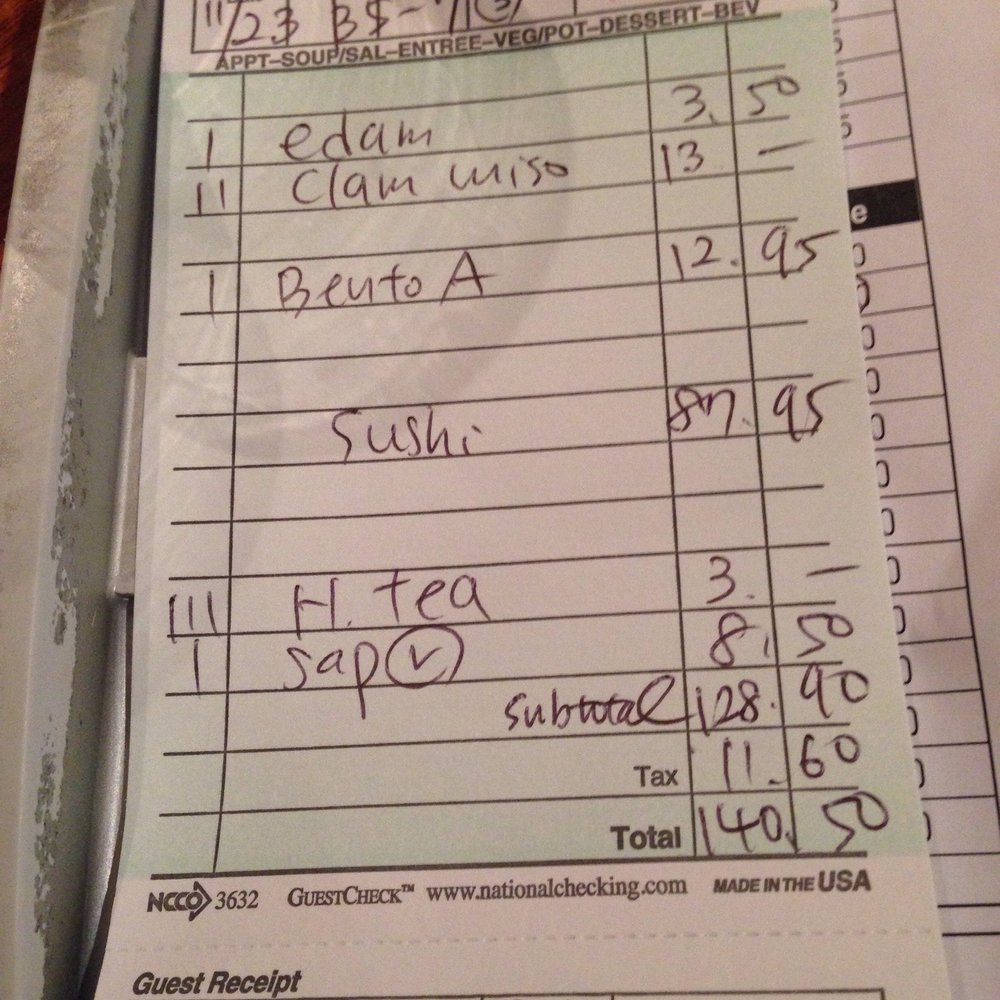 APPT-SOUP/SAL-ENTREE-VEG/POT-DESSERT-BEV
1 edam 3. 50
11 Clam miso 13 —
1 Bento A 12. 95
Sushi 87. 95
111 H. tea 3. —
1 sap v 8. 50
subtotal 128. 90
Tax 11. 60
Total 140. 50
NCCO 3632 GUESTCHECK™ www.nationalchecking.com MADE IN THE USA
Guest Receipt